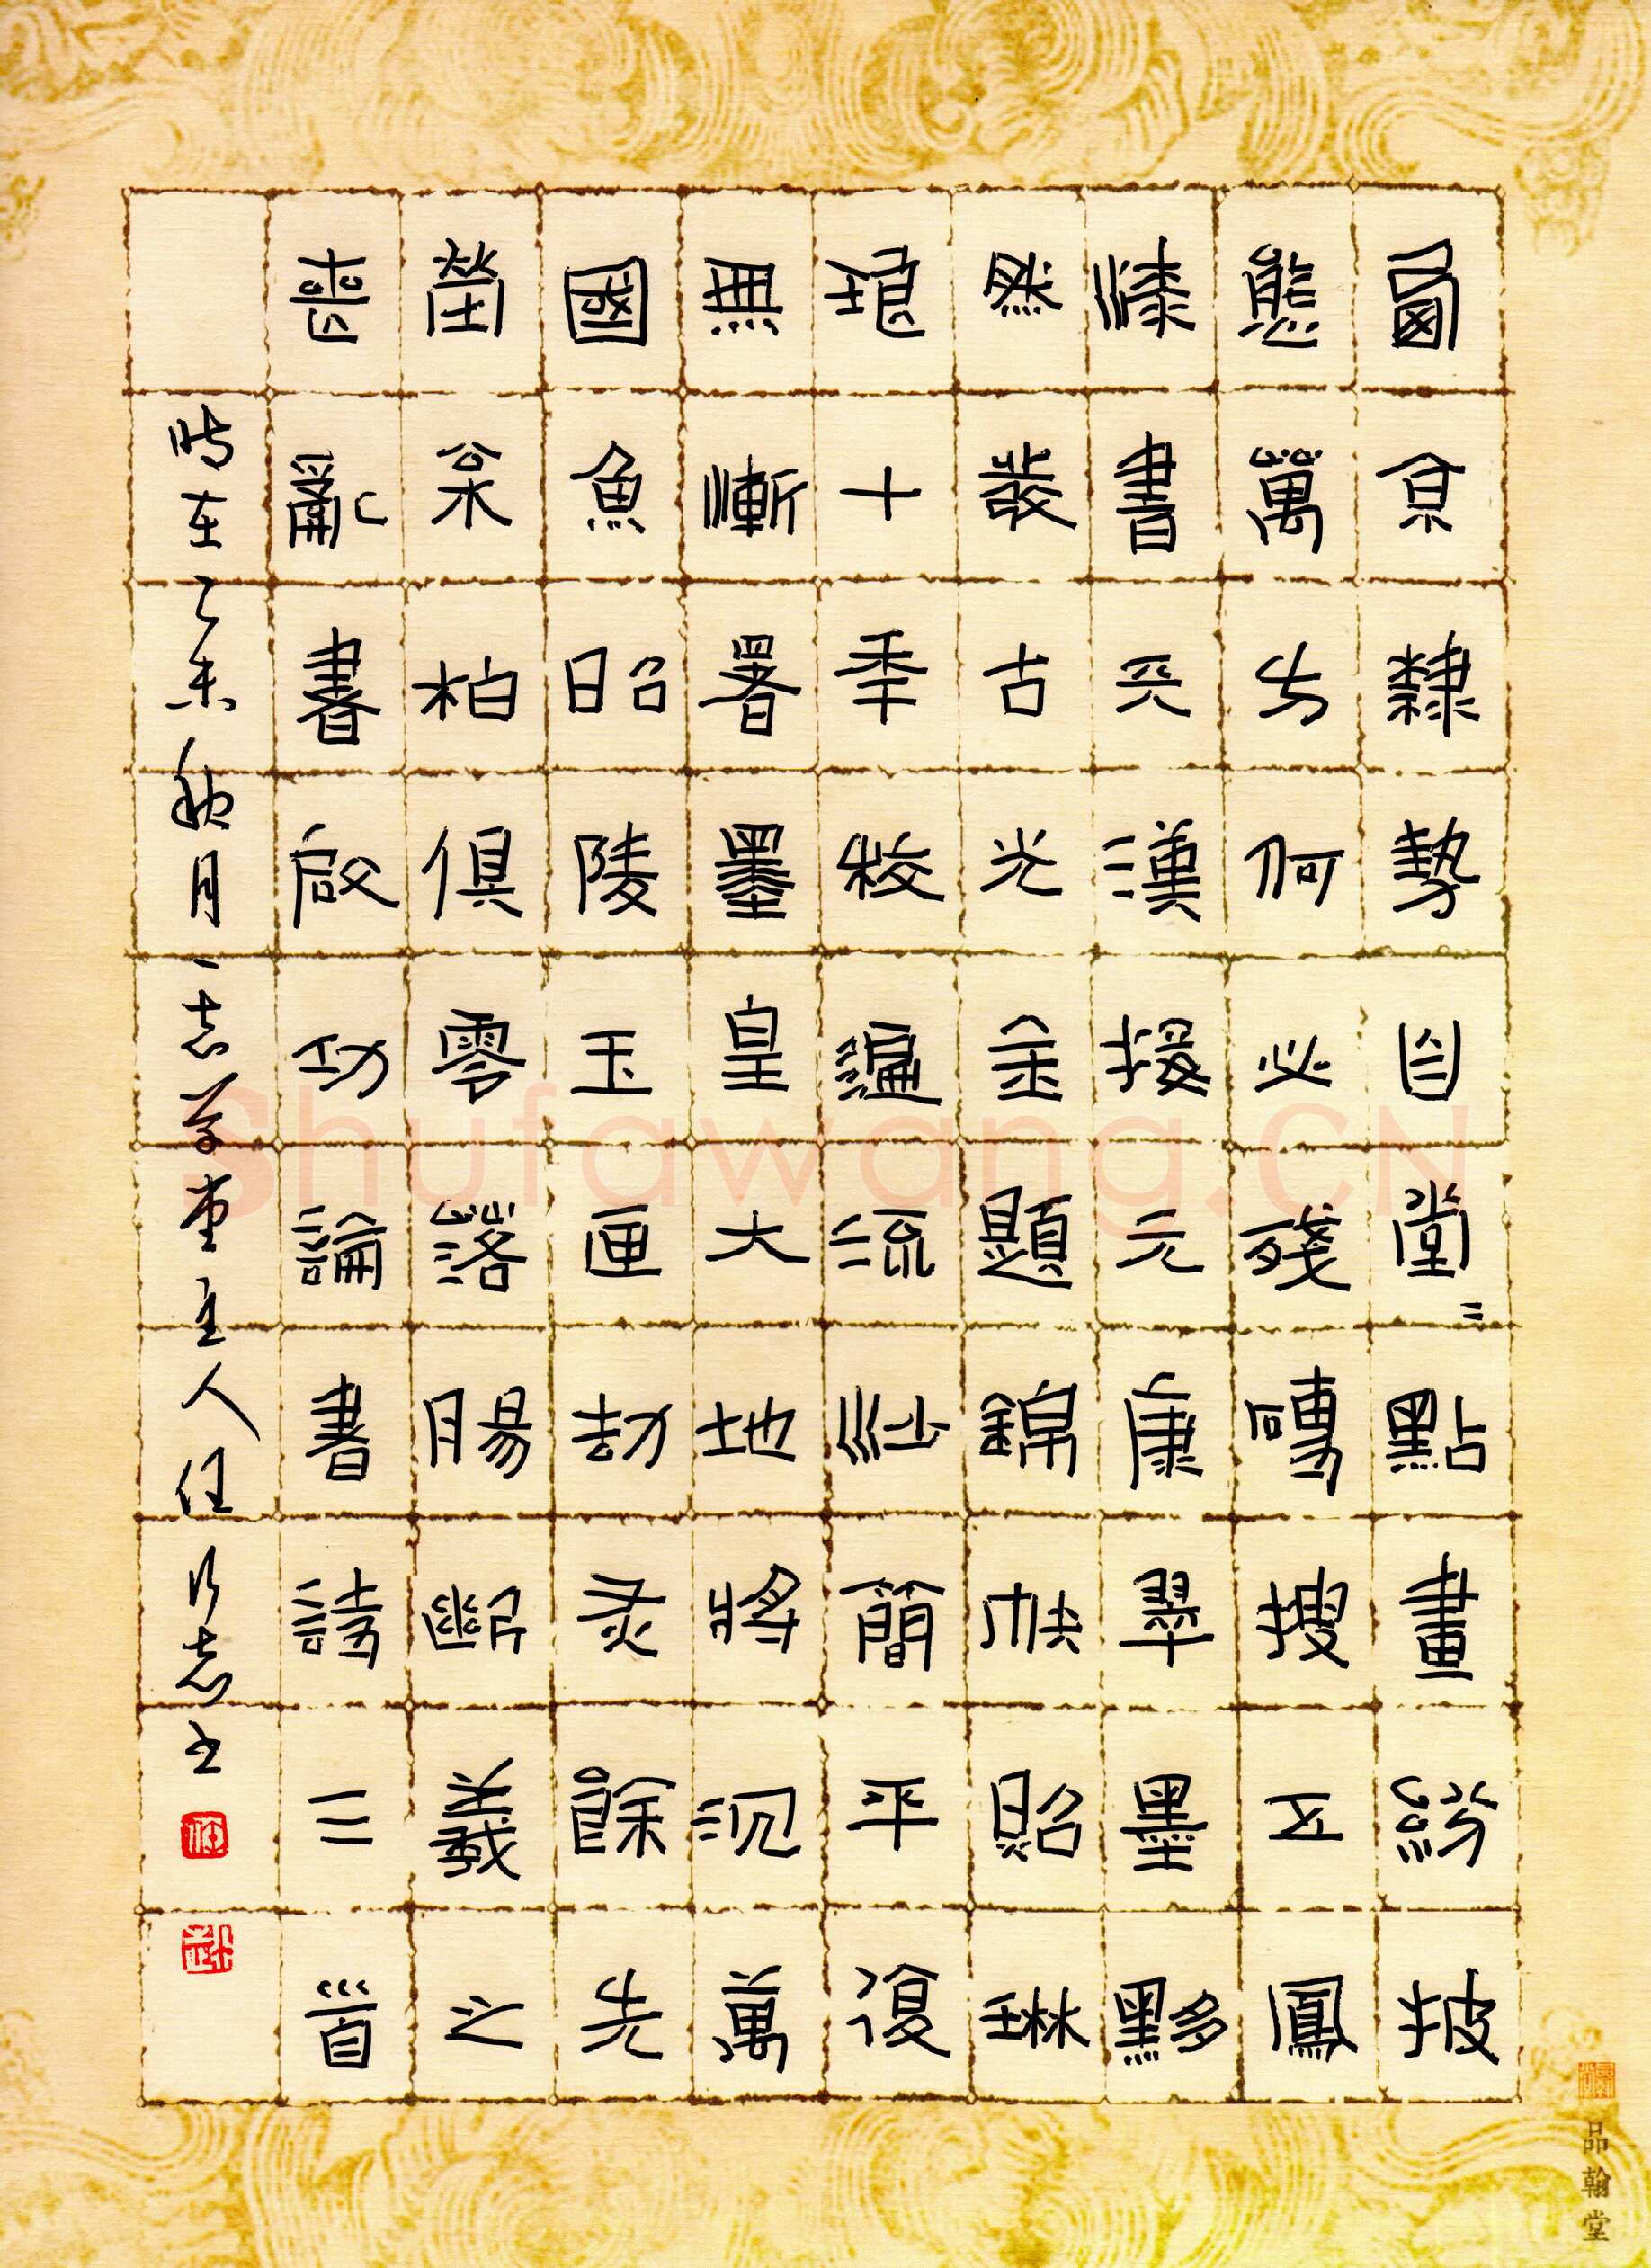 西京隸勢自堂〻點畫紛披
態萬方何必殘磚搜五鳳
漆書天漢接元康翠墨黟
然發古光金題錦帙照琳
琅十年校遍流沙簡平復
無漸署墨皇大地將沉萬
國魚昭陵玉匣劫灰餘先
塋松柏俱零落腸斷羲之
喪亂書啟功論書詩三首
时在乙未秋月一志草堂主人任乃志书
品翰堂
Shufawang.CN